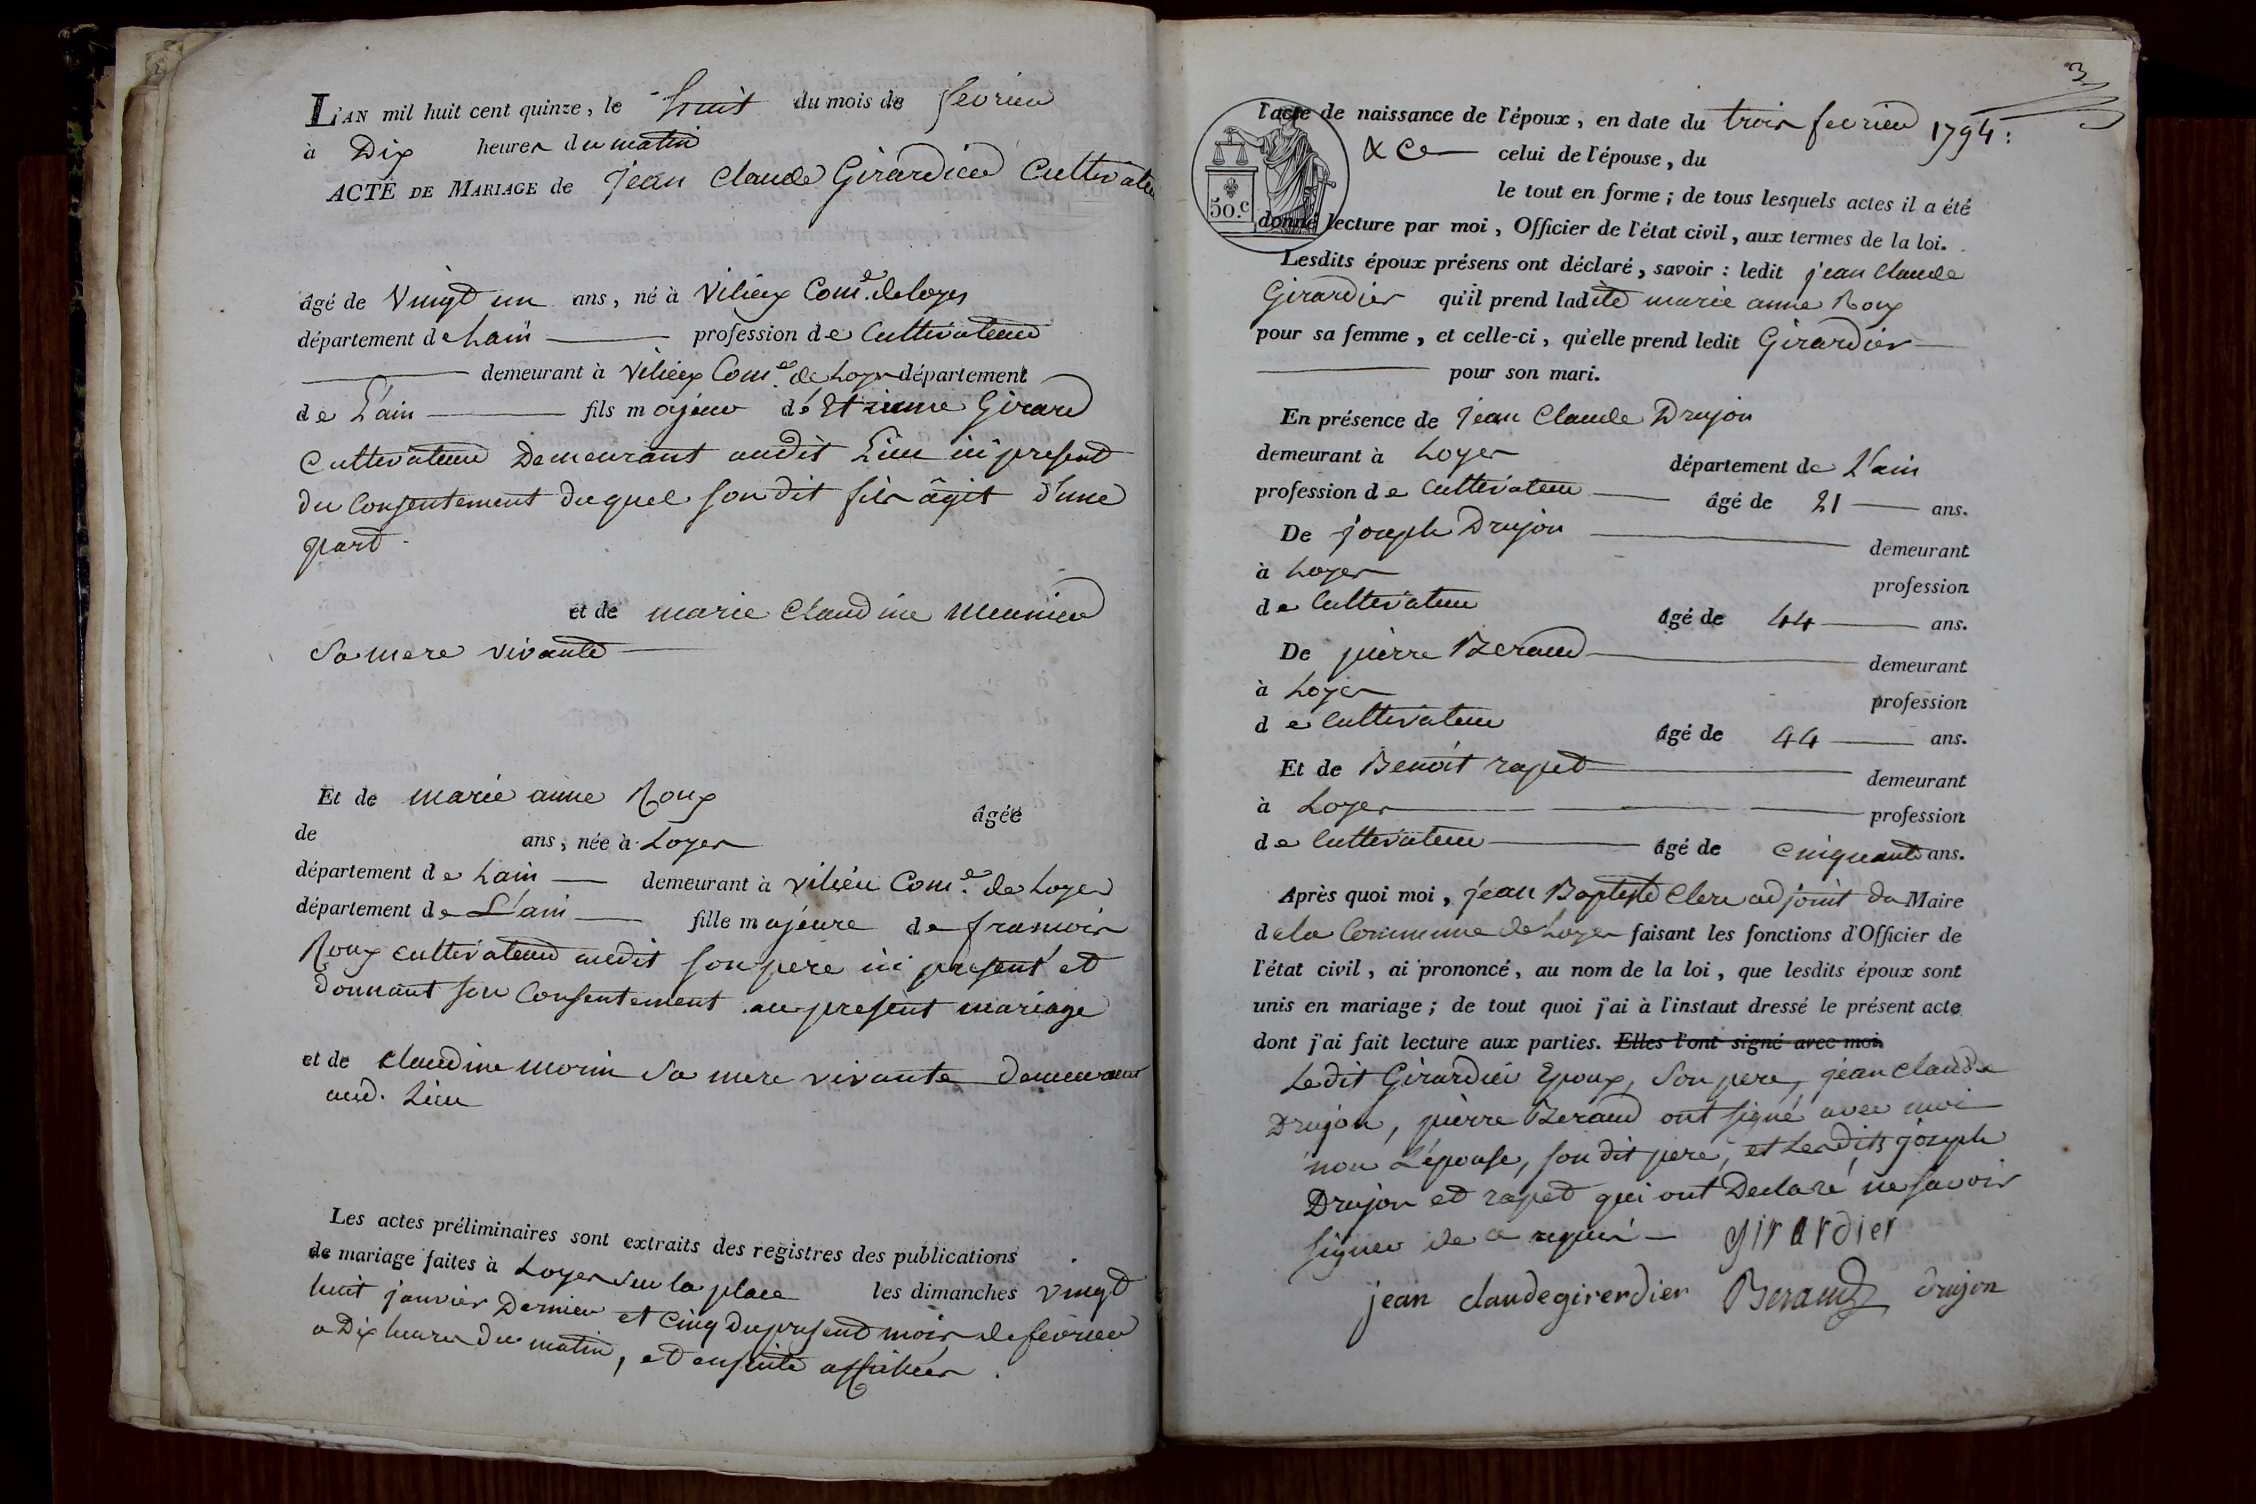 L'AN mil huit cent quinze, le huit du mois de fevrier
à Dix heures du matin
ACTE DE MARIAGE de jean Claude Girardier Cultivateur
âgé de Vingt un ans, né à Vilieux Com.e de loyes
département de Lain profession de Cultivateur
demeurant à Vilieux Com.e de Loyes département
de L'ain fils majeur de Etienne Girard
Cultivateur Demeurant audit Lieu ici present
du Consentement duquel son dit fils âgit d'une
part.
et de marie Claudine meunier
Sa mere vivante
Et de marie anne Roux âgée
de ans, née à Loyes
département de Lain demeurant à vilieu Com.e de Loyes
département de L'ain fille majeure de francois
Roux cultivateur audit son pere ici present et
donnant son Consentement au present mariage
et de Claudine morin Sa mere vivante demeurant
aud. Lieu
Les actes préliminaires sont extraits des registres des publications
de mariage faites à Loyes Sur la place les dimanches vingt
huit janvier Dernier et Cinq du present mois de fevrier
a Dix heures du matin, et ensuite affichées.
3
l'acte de naissance de l'époux, en date du trois fevrier 1794:
& Ce celui de l'épouse, du
50.c
le tout en forme; de tous lesquels actes il a été
donné lecture par moi, Officier de l'état civil, aux termes de la loi.
Lesdits époux présens ont déclaré, savoir: ledit jean Claude
Girardier qu'il prend ladite marie anne Roux
pour sa femme, et celle-ci, qu'elle prend ledit Girardier
pour son mari.
En présence de jean Claude Drujon
demeurant à Loyes département de L'ain
profession de Cultivateur âgé de 21 ans.
De joseph Drujon demeurant
à Loyes profession
de Cultivateur âgé de 44 ans.
De pierre Beraud demeurant
à Loyes profession
de Cultivateur âgé de 44 ans.
Et de Benoit rapet demeurant
à Loyes profession
de Cultivateur âgé de Cinquante ans.
Après quoi moi, jean Baptiste Clerc adjoint du Maire
de la Commune de Loyes faisant les fonctions d'Officier de
l'état civil, ai prononcé, au nom de la loi, que lesdits époux sont
unis en mariage; de tout quoi j'ai à l'instaut dressé le présent acte
dont j'ai fait lecture aux parties. Elles l'ont signé avec moi.
Le dit Girardier Epoux, Son pere, jean Claude
Drujon, pierre Beraud ont signé avec moi
non L'épouse, son dit pere, et Lesdits joseph
Drujon et rapet qui ont Declaré ne savoir
signer de ce requis girardier
jean claudegirerdier Beraud drujon